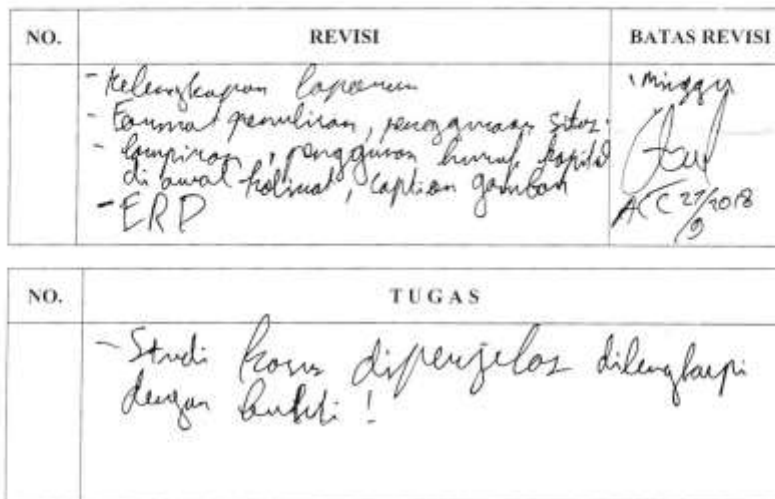 NO. REVISI BATAS REVISI
- Kelengkapan laporan 1 minggu
- Format penulisan, penggunaan situs.
- lampiran, penggunaan huruf kapital
di awal kalimat, caption gambar
- ERD
ACC 27/9 2018
NO. TUGAS
- Studi kasus diperjelas dilengkapi
dengan bukti !